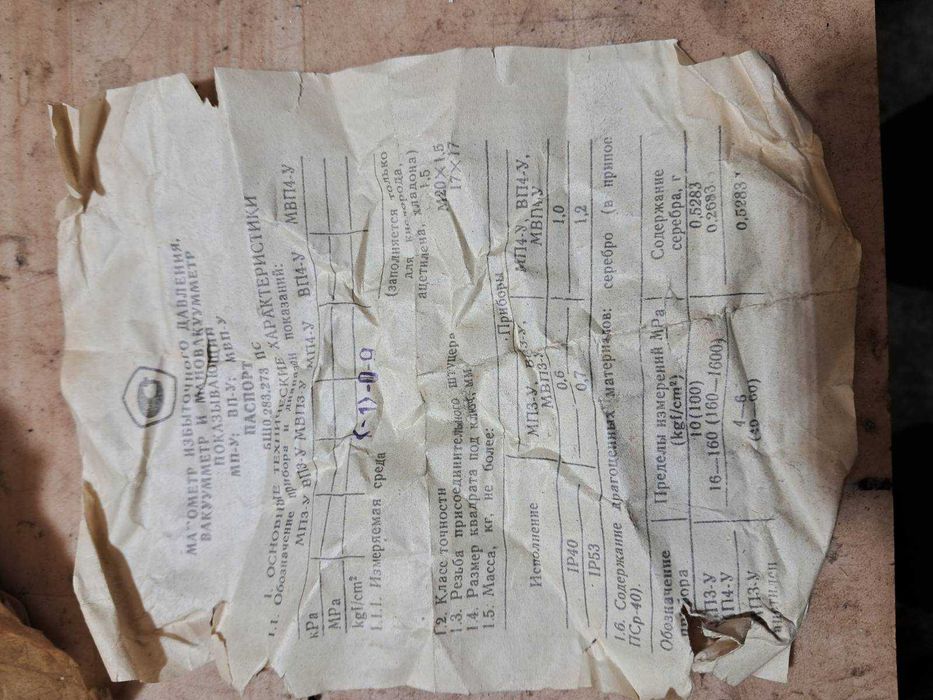 МАНОМЕТР ИЗБЫТОЧНОГО ДАВЛЕНИЯ,
ВАКУУММЕТР И МАНОВАКУУММЕТР
ПОКАЗЫВАЮЩИЙ
МП-У; ВП-У; МВП-У
ПАСПОРТ
5Ш0.283.273 ПС
1. ОСНОВНЫЕ ТЕХНИЧЕСКИЕ ХАРАКТЕРИСТИКИ
1.1. Обозначение прибора и диапазон показаний:
МП3-У ВП3-У МВП3-У МП4-У ВП4-У МВП4-У
кРа
МРа
kgf/cm²
(-1)-0-9
1.1.1. Измеряемая среда
(заполняется только
для кислорода,
ацетилена, хладона)
1.2. Класс точности 1,5
1.3. Резьба присоединительного штуцера М20×1,5
1.4. Размер квадрата под ключ, мм 17×17
1.5. Масса, кг, не более:
Исполнение Приборы
МП3-У, ВП3-У, МВП3-У МП4-У, ВП4-У, МВП4-У
IP40 0,6 1,0
IP53 0,7 1,2
1.6. Содержание драгоценных материалов: серебро (в припое
ПСр-40).
Обозначение прибора Пределы измерений МРа (kgf/cm²) Содержание серебра, г
МП3-У 10(100) 0,5283
МП4-У 16—160 (160—1600) 0,2683
МП3-У 4—6 (40—60) 0,5283